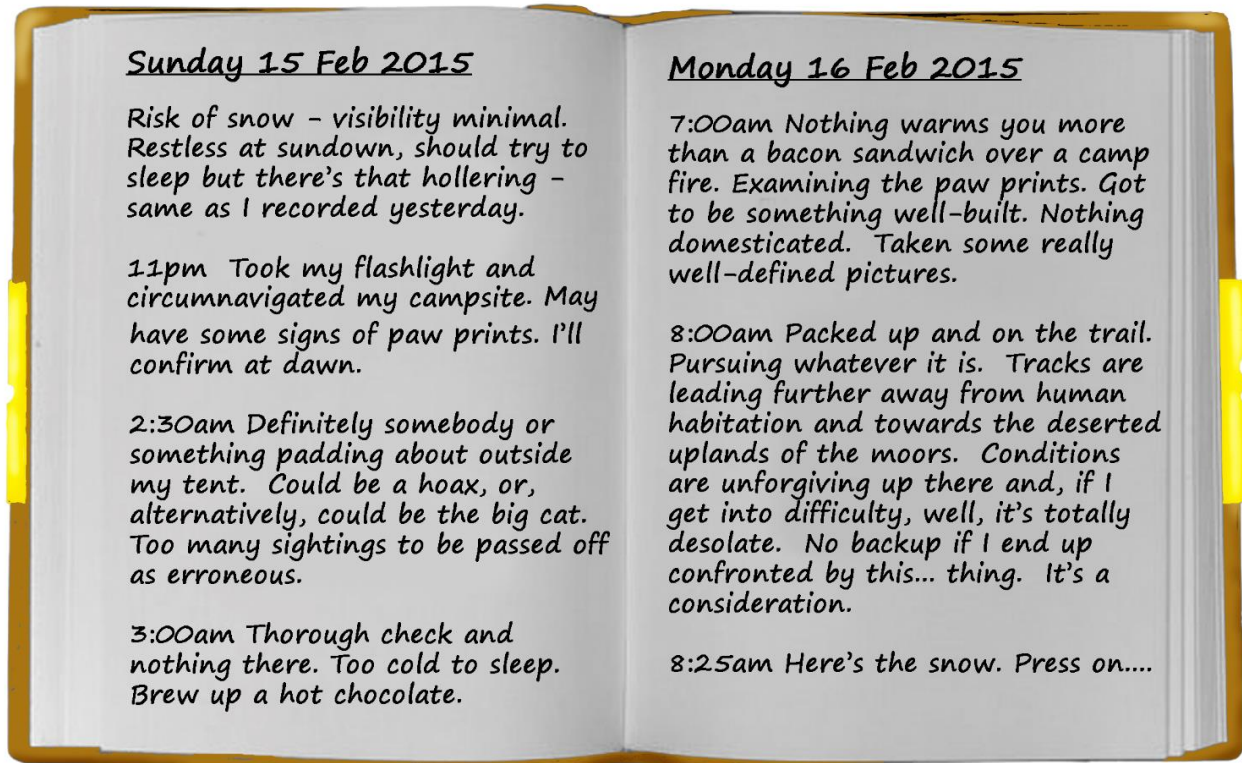 Sunday 15 Feb 2015
Risk of snow – visibility minimal.
Restless at sundown, should try to
sleep but there's that hollering –
same as I recorded yesterday.
11pm  Took my flashlight and
circumnavigated my campsite. May
have some signs of paw prints. I'll
confirm at dawn.
2:30am Definitely somebody or
something padding about outside
my tent.  Could be a hoax, or,
alternatively, could be the big cat.
Too many sightings to be passed off
as erroneous.
3:00am Thorough check and
nothing there. Too cold to sleep.
Brew up a hot chocolate.
Monday 16 Feb 2015
7:00am Nothing warms you more
than a bacon sandwich over a camp
fire. Examining the paw prints. Got
to be something well-built. Nothing
domesticated.  Taken some really
well-defined pictures.
8:00am Packed up and on the trail.
Pursuing whatever it is.  Tracks are
leading further away from human
habitation and towards the deserted
uplands of the moors.  Conditions
are unforgiving up there and, if I
get into difficulty, well, it's totally
desolate.  No backup if I end up
confronted by this... thing.  It's a
consideration.
8:25am Here's the snow. Press on....